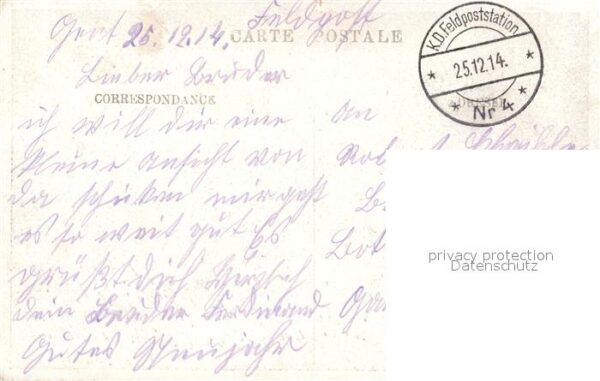 Gent 25.12.14. Feldpost
CARTE POSTALE
K.D. Feldpoststation
25.12.14.
Nr 4
Lieber Bruder
CORRESPONDANCE
ADRESSE
ich will dir eine
kleine Ansicht von
da schicken mir geht
es so weit gut Es
grüßt dich herzlich
dein Bruder Ferdinand
Gutes Neujahr
An
privacy protection
Datenschutz